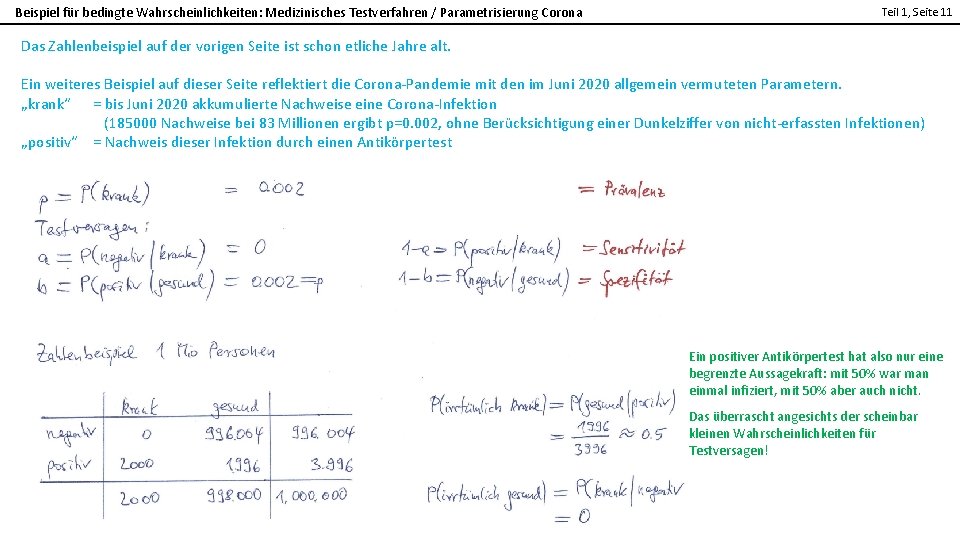 Beispiel für bedingte Wahrscheinlichkeiten: Medizinisches Testverfahren / Parametrisierung Corona
Teil 1, Seite 11
Das Zahlenbeispiel auf der vorigen Seite ist schon etliche Jahre alt.
Ein weiteres Beispiel auf dieser Seite reflektiert die Corona-Pandemie mit den im Juni 2020 allgemein vermuteten Parametern.
„krank“ = bis Juni 2020 akkumulierte Nachweise eine Corona-Infektion
(185000 Nachweise bei 83 Millionen ergibt p=0.002, ohne Berücksichtigung einer Dunkelziffer von nicht-erfassten Infektionen)
„positiv“ = Nachweis dieser Infektion durch einen Antikörpertest
p = P(krank) = 0.002 = Prävalenz
Testversagen:
a = P(negativ/krank) = 0 1-a = P(positiv/krank) = Sensitivität
b = P(positiv/gesund) = 0.002 = p 1-b = P(negativ/gesund) = Spezifität
Zahlenbeispiel 1 Mio Personen
krank gesund
negativ 0 996.004 996.004
positiv 2000 1.996 3.996
2000 998.000 1,000,000
P(irrtümlich krank) = P(gesund/positiv)
= 1996/3996 ≈ 0.5
P(irrtümlich gesund) = P(krank/negativ)
= 0
Ein positiver Antikörpertest hat also nur eine
begrenzte Aussagekraft: mit 50% war man
einmal infiziert, mit 50% aber auch nicht.
Das überrascht angesichts der scheinbar
kleinen Wahrscheinlichkeiten für
Testversagen!